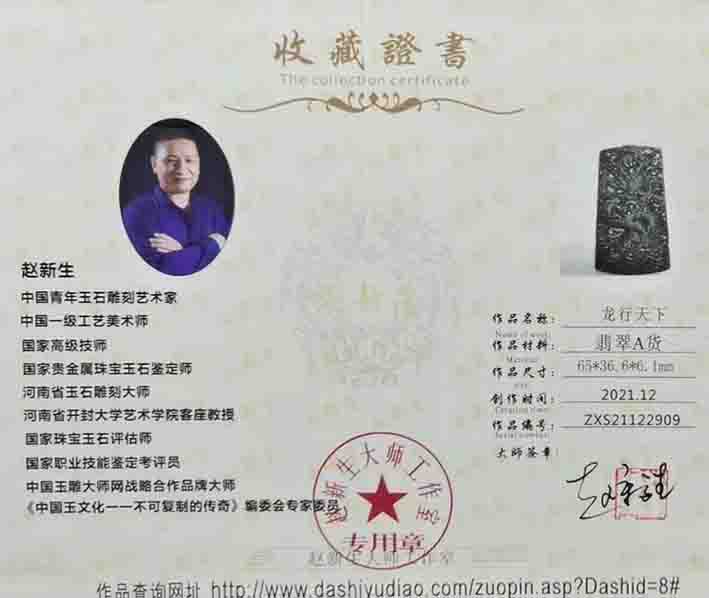 收藏證書
The collection certificate
赵新生
中国青年玉石雕刻艺术家
中国一级工艺美术师
国家高级技师
国家贵金属珠宝玉石鉴定师
河南省玉石雕刻大师
河南省开封大学艺术学院客座教授
国家珠宝玉石评估师
国家职业技能鉴定考评员
中国玉雕大师网战略合作品牌大师
《中国玉文化一一不可复制的传奇》编委会专家委员
作品名称: 龙行天下
Name of work:
作品材料: 翡翠A货
Material
作品尺寸: 65*36.6*6.1mm
size:
创作时间: 2021.12
Creation time:
作品编号: ZXS21122909
Serial number:
大师签章:
赵新生大师工作室
专用章
赵新生大师工作室
作品查询网址 http://www.dashiyudiao.com/zuopin.asp?Dashid=8#